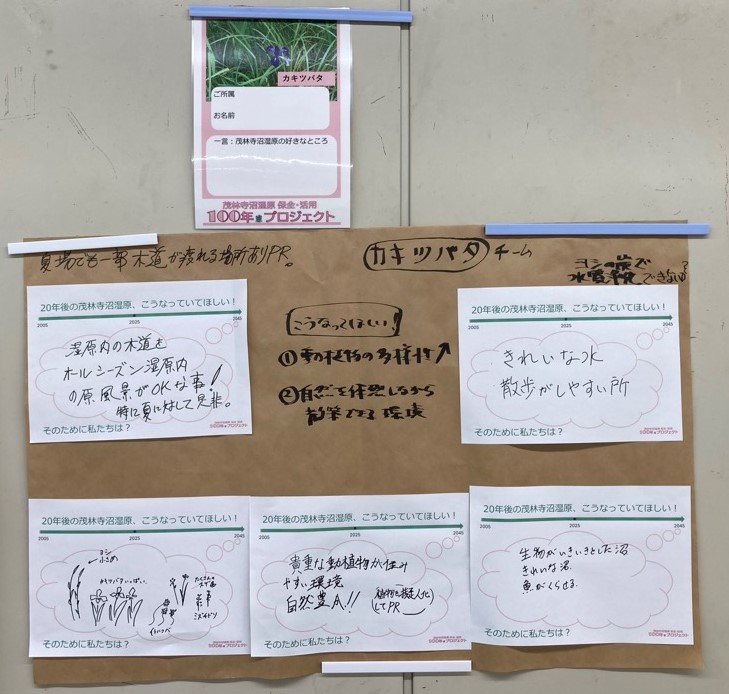 カキツバタ
ご所属
お名前
一言：茂林寺沼湿原の好きなところ
茂林寺沼湿原 保全・活用
100年プロジェクト
夏場でも一部木道が疲れる場所ありPR。
カキツバタ チーム
ヨシの炭で
水質できないか？
20年後の茂林寺沼湿原、こうなっていてほしい！
2005 2025 2045
湿原内の木道を
オールシーズン湿原内
の原風景がOKな事！
特に夏に対して是非。
そのために私たちは？
100年プロジェクト
こうなってほしい！
① 動植物の多様性↑
② 自然を体感しながら
散策できる環境
20年後の茂林寺沼湿原、こうなっていてほしい！
2005 2025 2045
きれいな水
散歩がしやすい所
そのために私たちは？
100年プロジェクト
20年後の茂林寺沼湿原、こうなっていてほしい！
2005 2025 2045
ヨシ
小さめ
カキツバタいっぱい
たくさんの
そのために私たちは？
100年プロジェクト
20年後の茂林寺沼湿原、こうなっていてほしい！
2005 2025 2045
貴重な動植物が住み
やすい環境
自然豊か！！
植物を擬人化
してPR
そのために私たちは？
100年プロジェクト
20年後の茂林寺沼湿原、こうなっていてほしい！
2005 2025 2045
生物がいきいきとした沼
きれいな沼
魚がくらせる
そのために私たちは？
100年プロジェクト